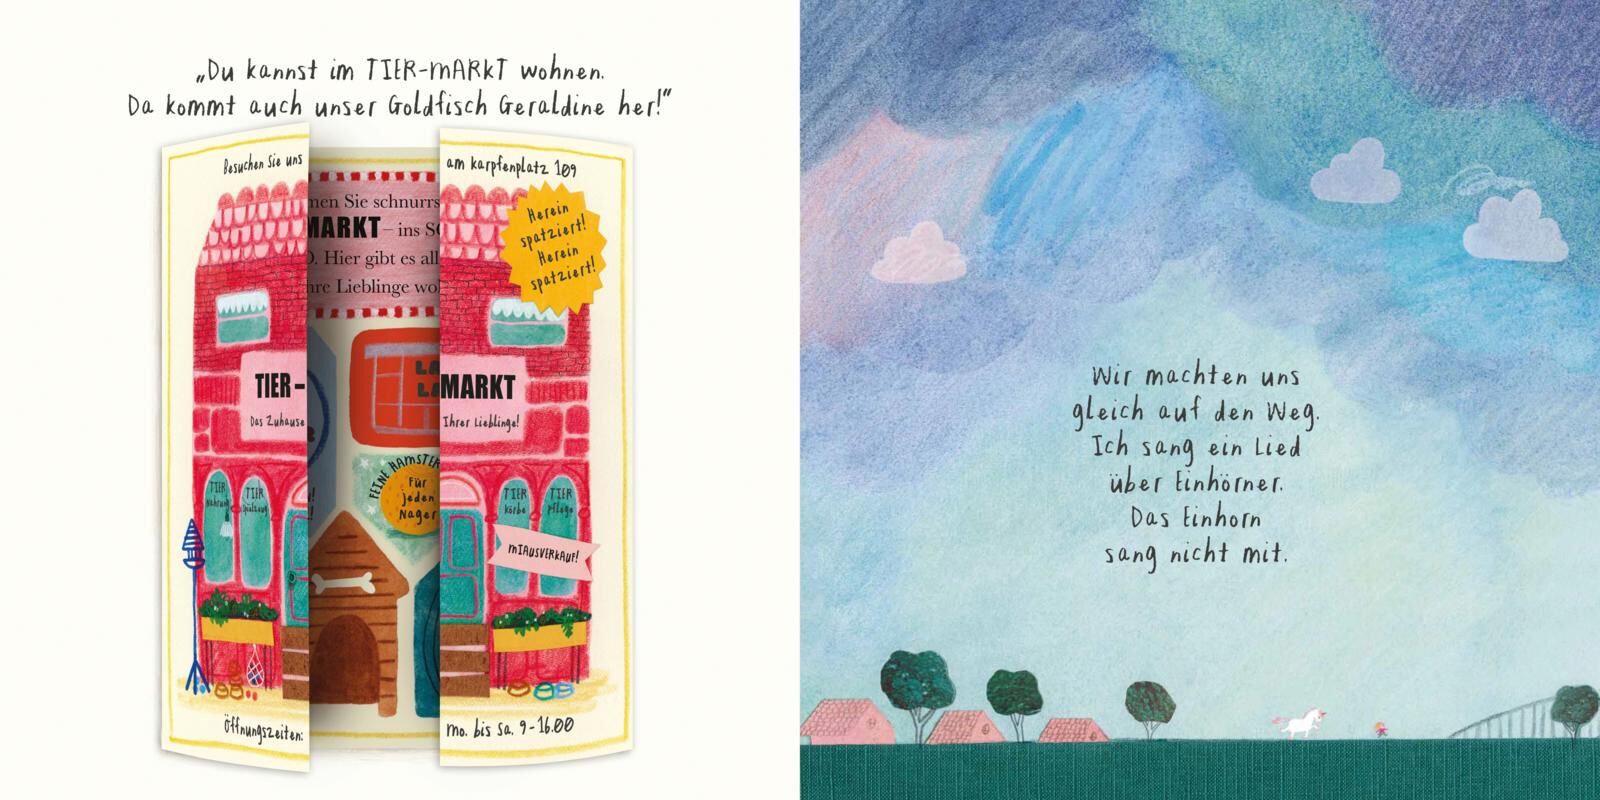 „Du kannst im TIER-MARKT wohnen.
Da kommt auch unser Goldfisch Geraldine her!“
Besuchen Sie uns
am Karpfenplatz 109
Herein
spatziert!
Herein
spatziert!
men Sie schnurrs
MARKT – ins SC
O. Hier gibt es all
hre Lieblinge wo
TIER-
MARKT
Das Zuhause
Ihrer Lieblinge!
FEINE HAMSTER
Für
jeden
Nager
TIER
Nahrung
TIER
Spielzeug
TIER
Körbe
TIER
pflege
MIAUSVERKAUF!
Öffnungszeiten:
Mo. bis Sa. 9-16.00
Wir machten uns
gleich auf den Weg.
Ich sang ein Lied
über Einhörner.
Das Einhorn
sang nicht mit.